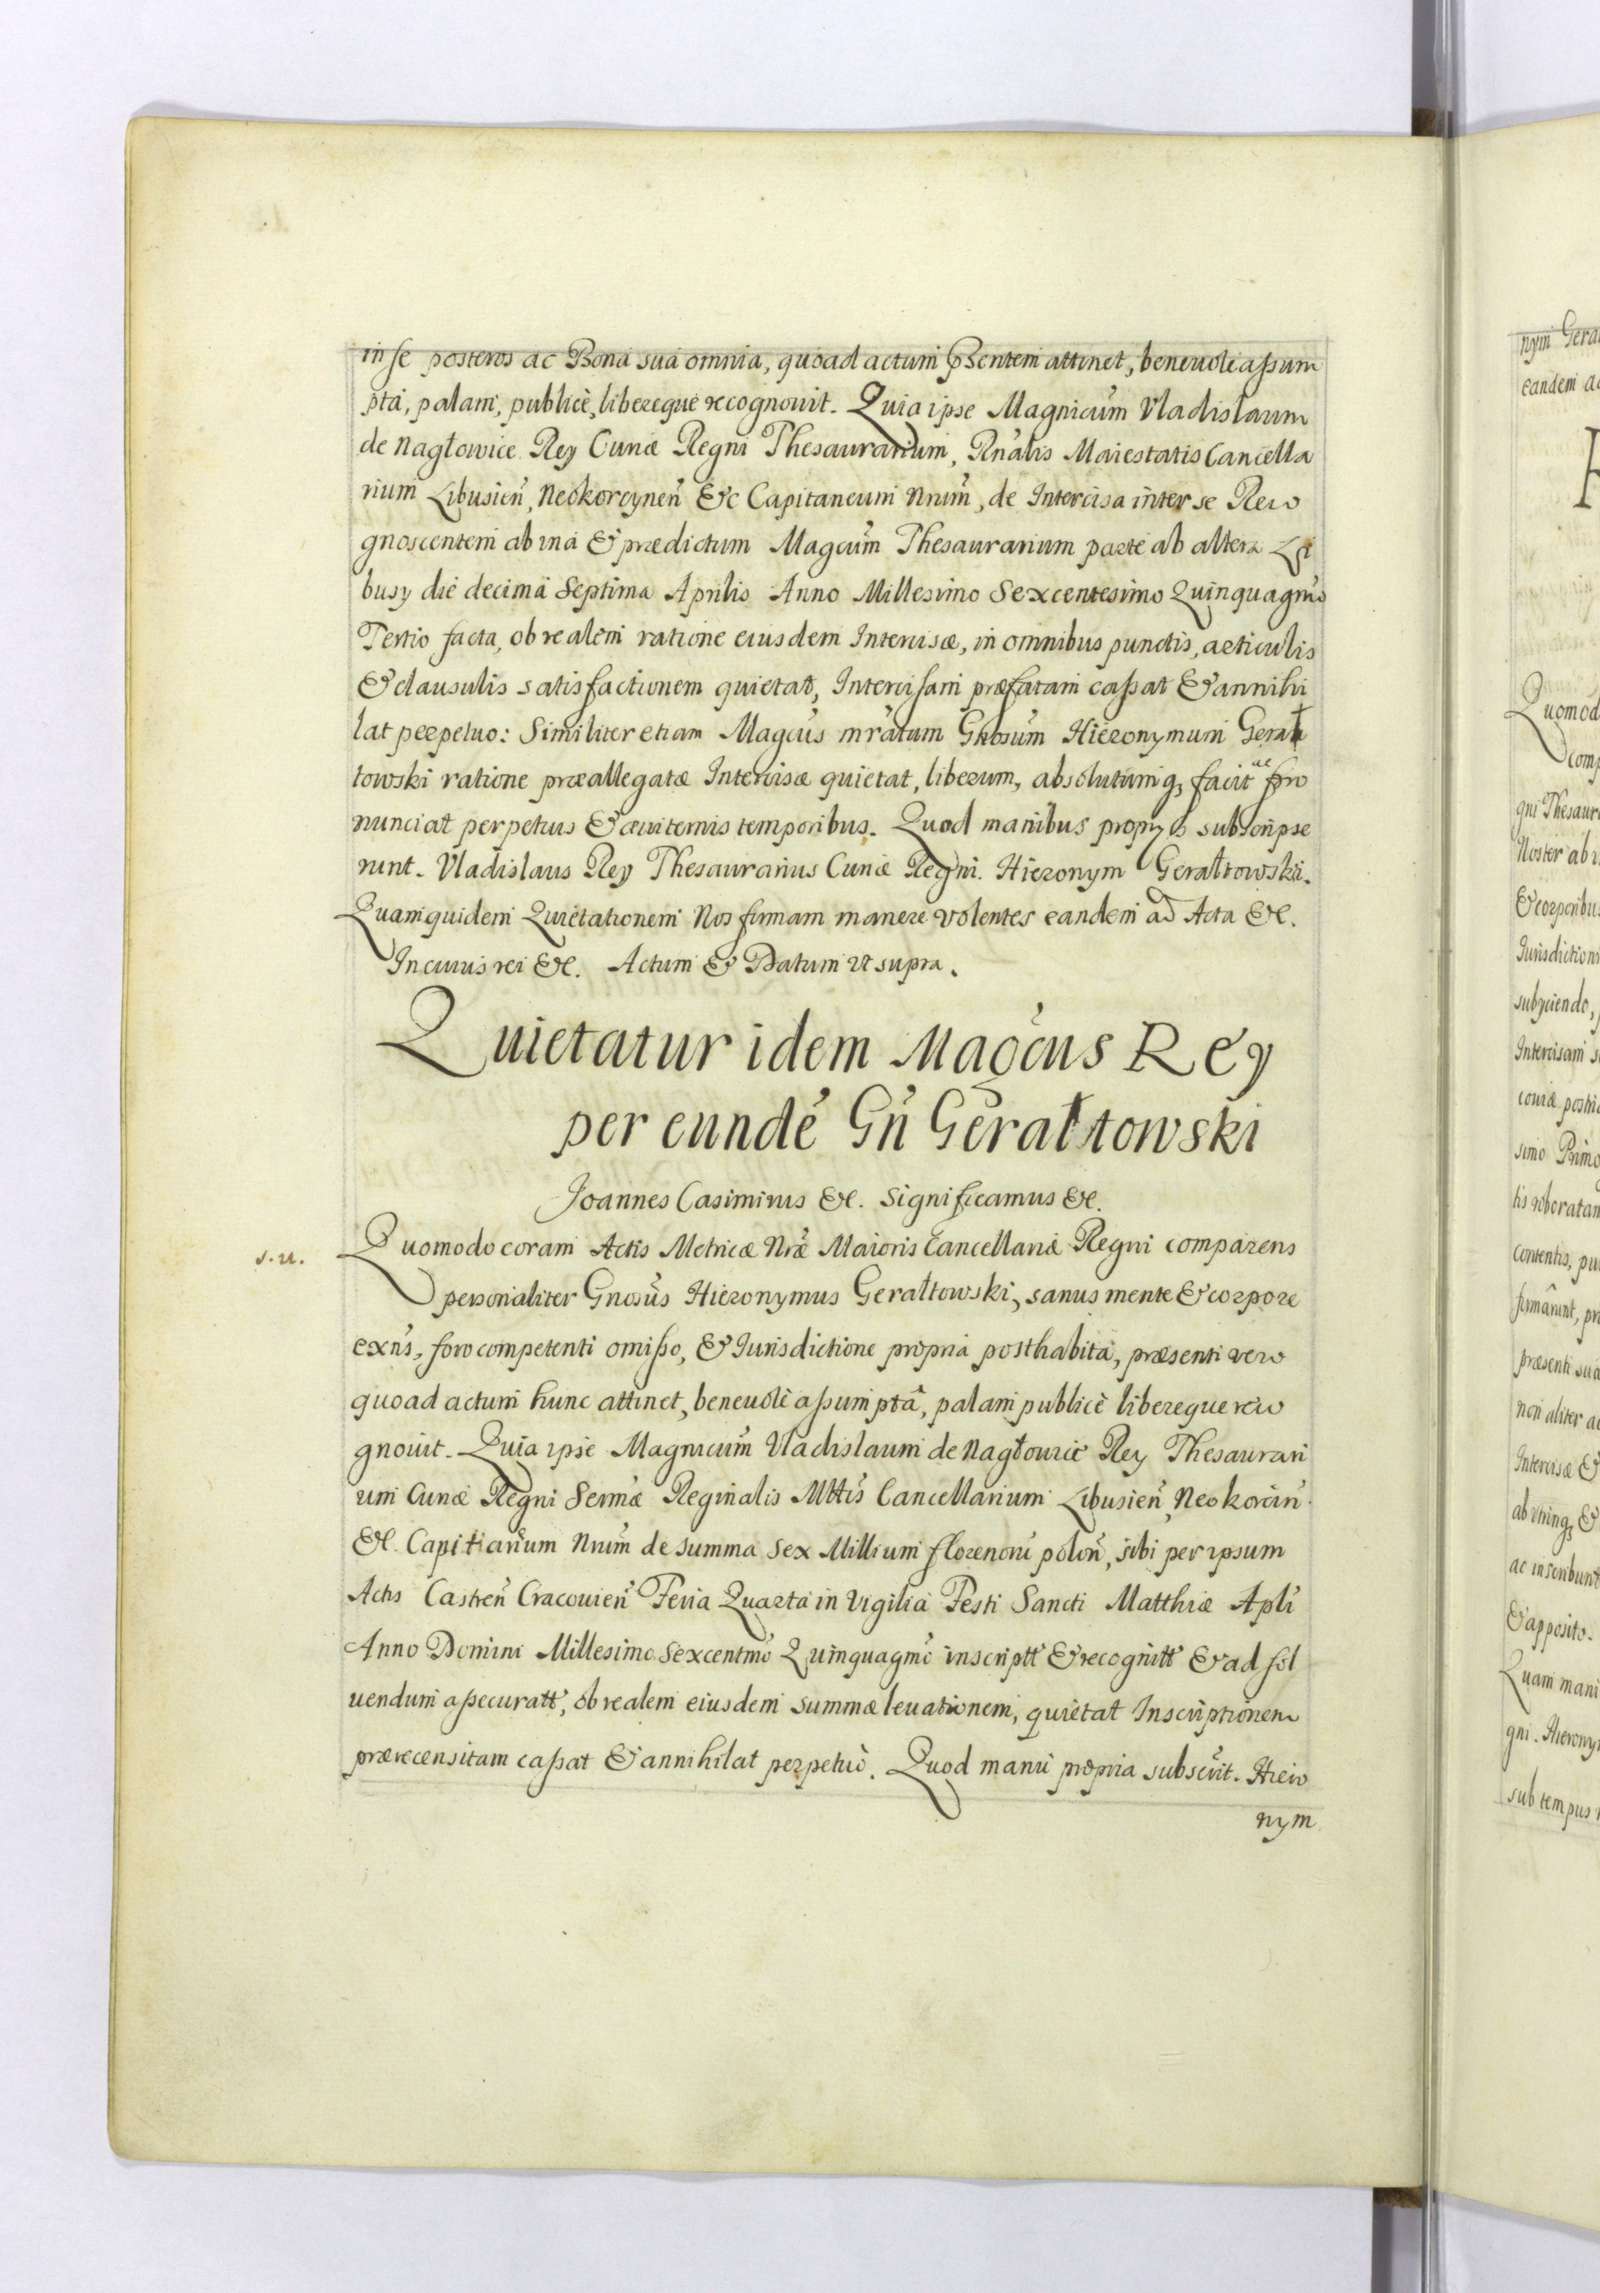 in se posteros ac Bona sua omnia, quoad actum pñsentem attinet, beneuole assum
pta, palam, publicè, libereque recognouit. Quia ipse Magnicum̃ Vladislaum
de Nagłowice Rey Curiæ Regni Thesaurarium, Rñalis Maiestatis Cancella
rium Libusien̄, Neokorcynen̄ &c Capitaneum Nrum̃, de Intercisa inter se Reco
gnoscentem ab una & prædictum Magcum̃ Thesaurarium parte ab altera Li
busy die decima Septima Aprilis Anno Millesimo Sexcentesimo Quinquagm̃o
Tertio facta, ob realem ratione eiusdem Intercisæ, in omnibus punctis, articulis
& clausulis satisfactionem quietat, Intercisam præfatam cassat & annihi
lat perpetuo: Similiter etiam Magcus̃ mr̃atum Gñosum̃ Hieronymum Gerał
towski ratione præallegatæ Intercisæ quietat, liberum, absolutumq₃ facit ac pro
nunciat perpetuis & æuiternis temporibus. Quod manibus proprijs subscripse
runt. Vladislaus Rey Thesaurarius Curiæ Regni. Hieronym Gerałtowski.
Quam quidem Quietationem Nos firmam manere volentes eandem ad Acta &c.
In cuius rei &c. Actum & Datum vt supra.
Quietatur idem Magc̃us Rey
per eunde̓ Gn̓ Gerałtowski
Joannes Casimirus &c. Significamus &c.
s. u.
Quomodo coram Actis Metricæ Nr̃æ Maioris Cancellariæ Regni comparens
personaliter Gnosus̃ Hieronymus Gerałtowski, sanus mente & corpore
exn̄s, foro competenti omisso, & Iurisdictione propria posthabita, præsenti vero
quoad actum hunc attinet, beneuolè assumptâ, palam publicè libereque reco
gnouit. Quia ipse Magnicum̃ Vladislaum de Nagłowic Rey Thesaurari
um Curiæ Regni Serm̃æ Reginalis Mttis̃ Cancellarium Libusien̄, Neokorcin̄
&c. Capitianeum Nrum̃ de summa Sex Millium florenoru̓ polon̄, sibi per ipsum
Actis Castren̄ Cracouien̄ Feria Quarta in Vigilia Festi Sancti Matthiæ Apli̓
Anno Domini Millesimo Sexcentmo̓ Quinquagmo̓ inscriptt̓ & recognitt̓ & ad sol
uendum assecuratt̓, ob realem eiusdem summæ leuationem, quietat Inscriptionem
prærecensitam cassat & annihilat perpetuò. Quod manu propria subscr̃it. Hiero
nym